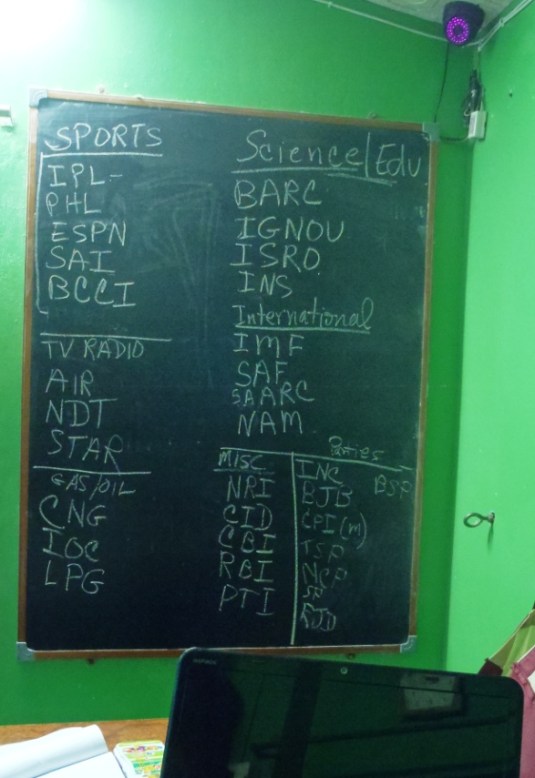 SPORTS
IPL-
PHL
ESPN
SAI
BCCI
TV RADIO
AIR
NDT
STAR
GAS/OIL
CNG
IOC
LPG
Science/Edu
BARC
IGNOU
ISRO
INS
International
IMF
SAF
SAARC
NAM
MISC
NRI
CID
CBI
RBI
PTI
Parties
INC BSP
BJB
CPI(m)
TSP
NCP
SP
RJD